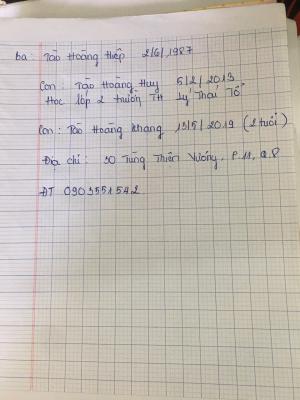 Ba : Tào Hoàng Hiệp 2/6/1987
Con : Tào Hoàng Huy 5/2/2013
Học lớp 2 trường TH Lý Thái Tổ
Con : Tào Hoàng Khang 13/5/2019 (2 tuổi)
Địa chỉ : 50 Tùng Thiện Vương, P.11, Q.8
ĐT 0903551542